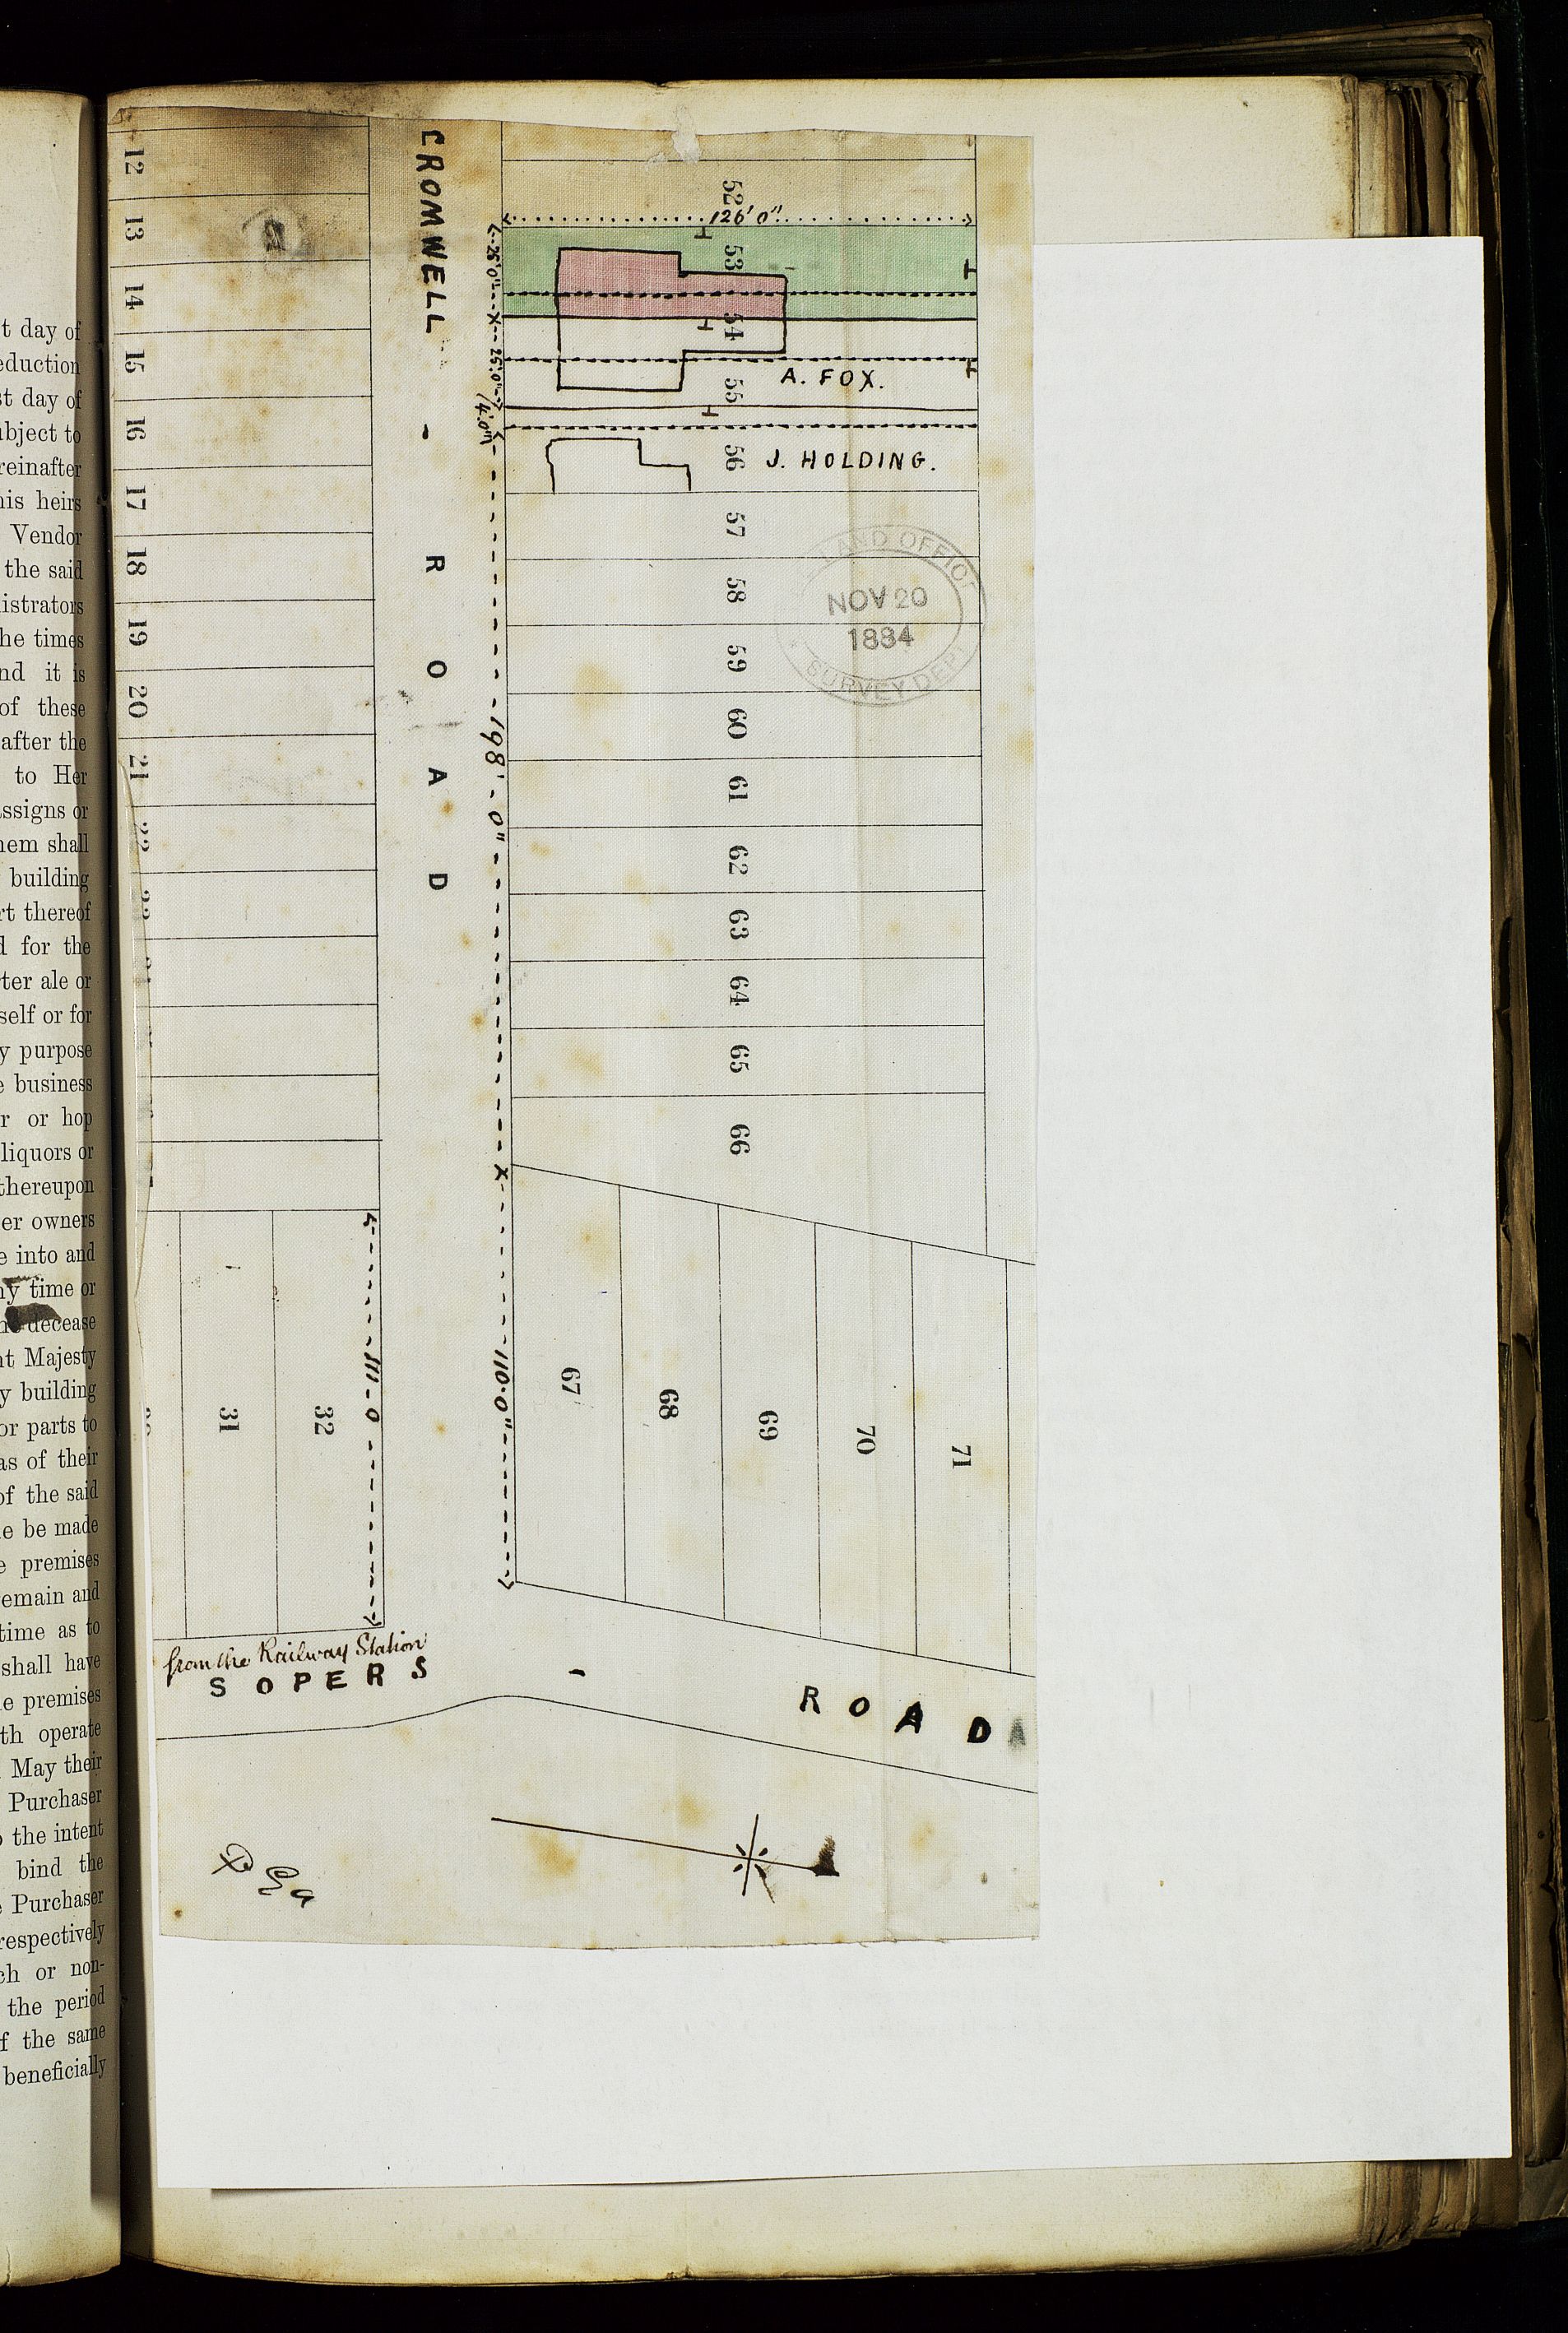 t day of
eduction
st day of
ubject to
reinafter
his heirs
Vendor
the said
istrators
he times
nd it is
of these
after the
to Her
assigns or
hem shall
building
rt thereof
d for the
ter ale or
self or for
y purpose
e business
r or hop
liquors or
thereupon
er owners
e into and
ny time or
decease
nt Majesty
y building
or parts to
as of their
of the said
e be made
e premises
remain and
time as to
shall have
e premises
th operate
May their
Purchaser
o the intent
bind the
e Purchaser
respectively
ch or non-
the period
f the same
beneficially
12
13
14
15
16
17
18
19
20
21
22
31
32
CROMWELL - ROAD
52
126' 0"
53
54
55
56
57
58
59
60
61
62
63
64
65
66
67
68
69
70
71
26' 0"
25' 0"
4' 0"
198' - 0"
110 - 0"
111 - 0
A. FOX.
J. HOLDING.
LAND OFFICE
NOV 20
1884
SURVEY DEPT
from the Railway Station
SOPERS - ROAD